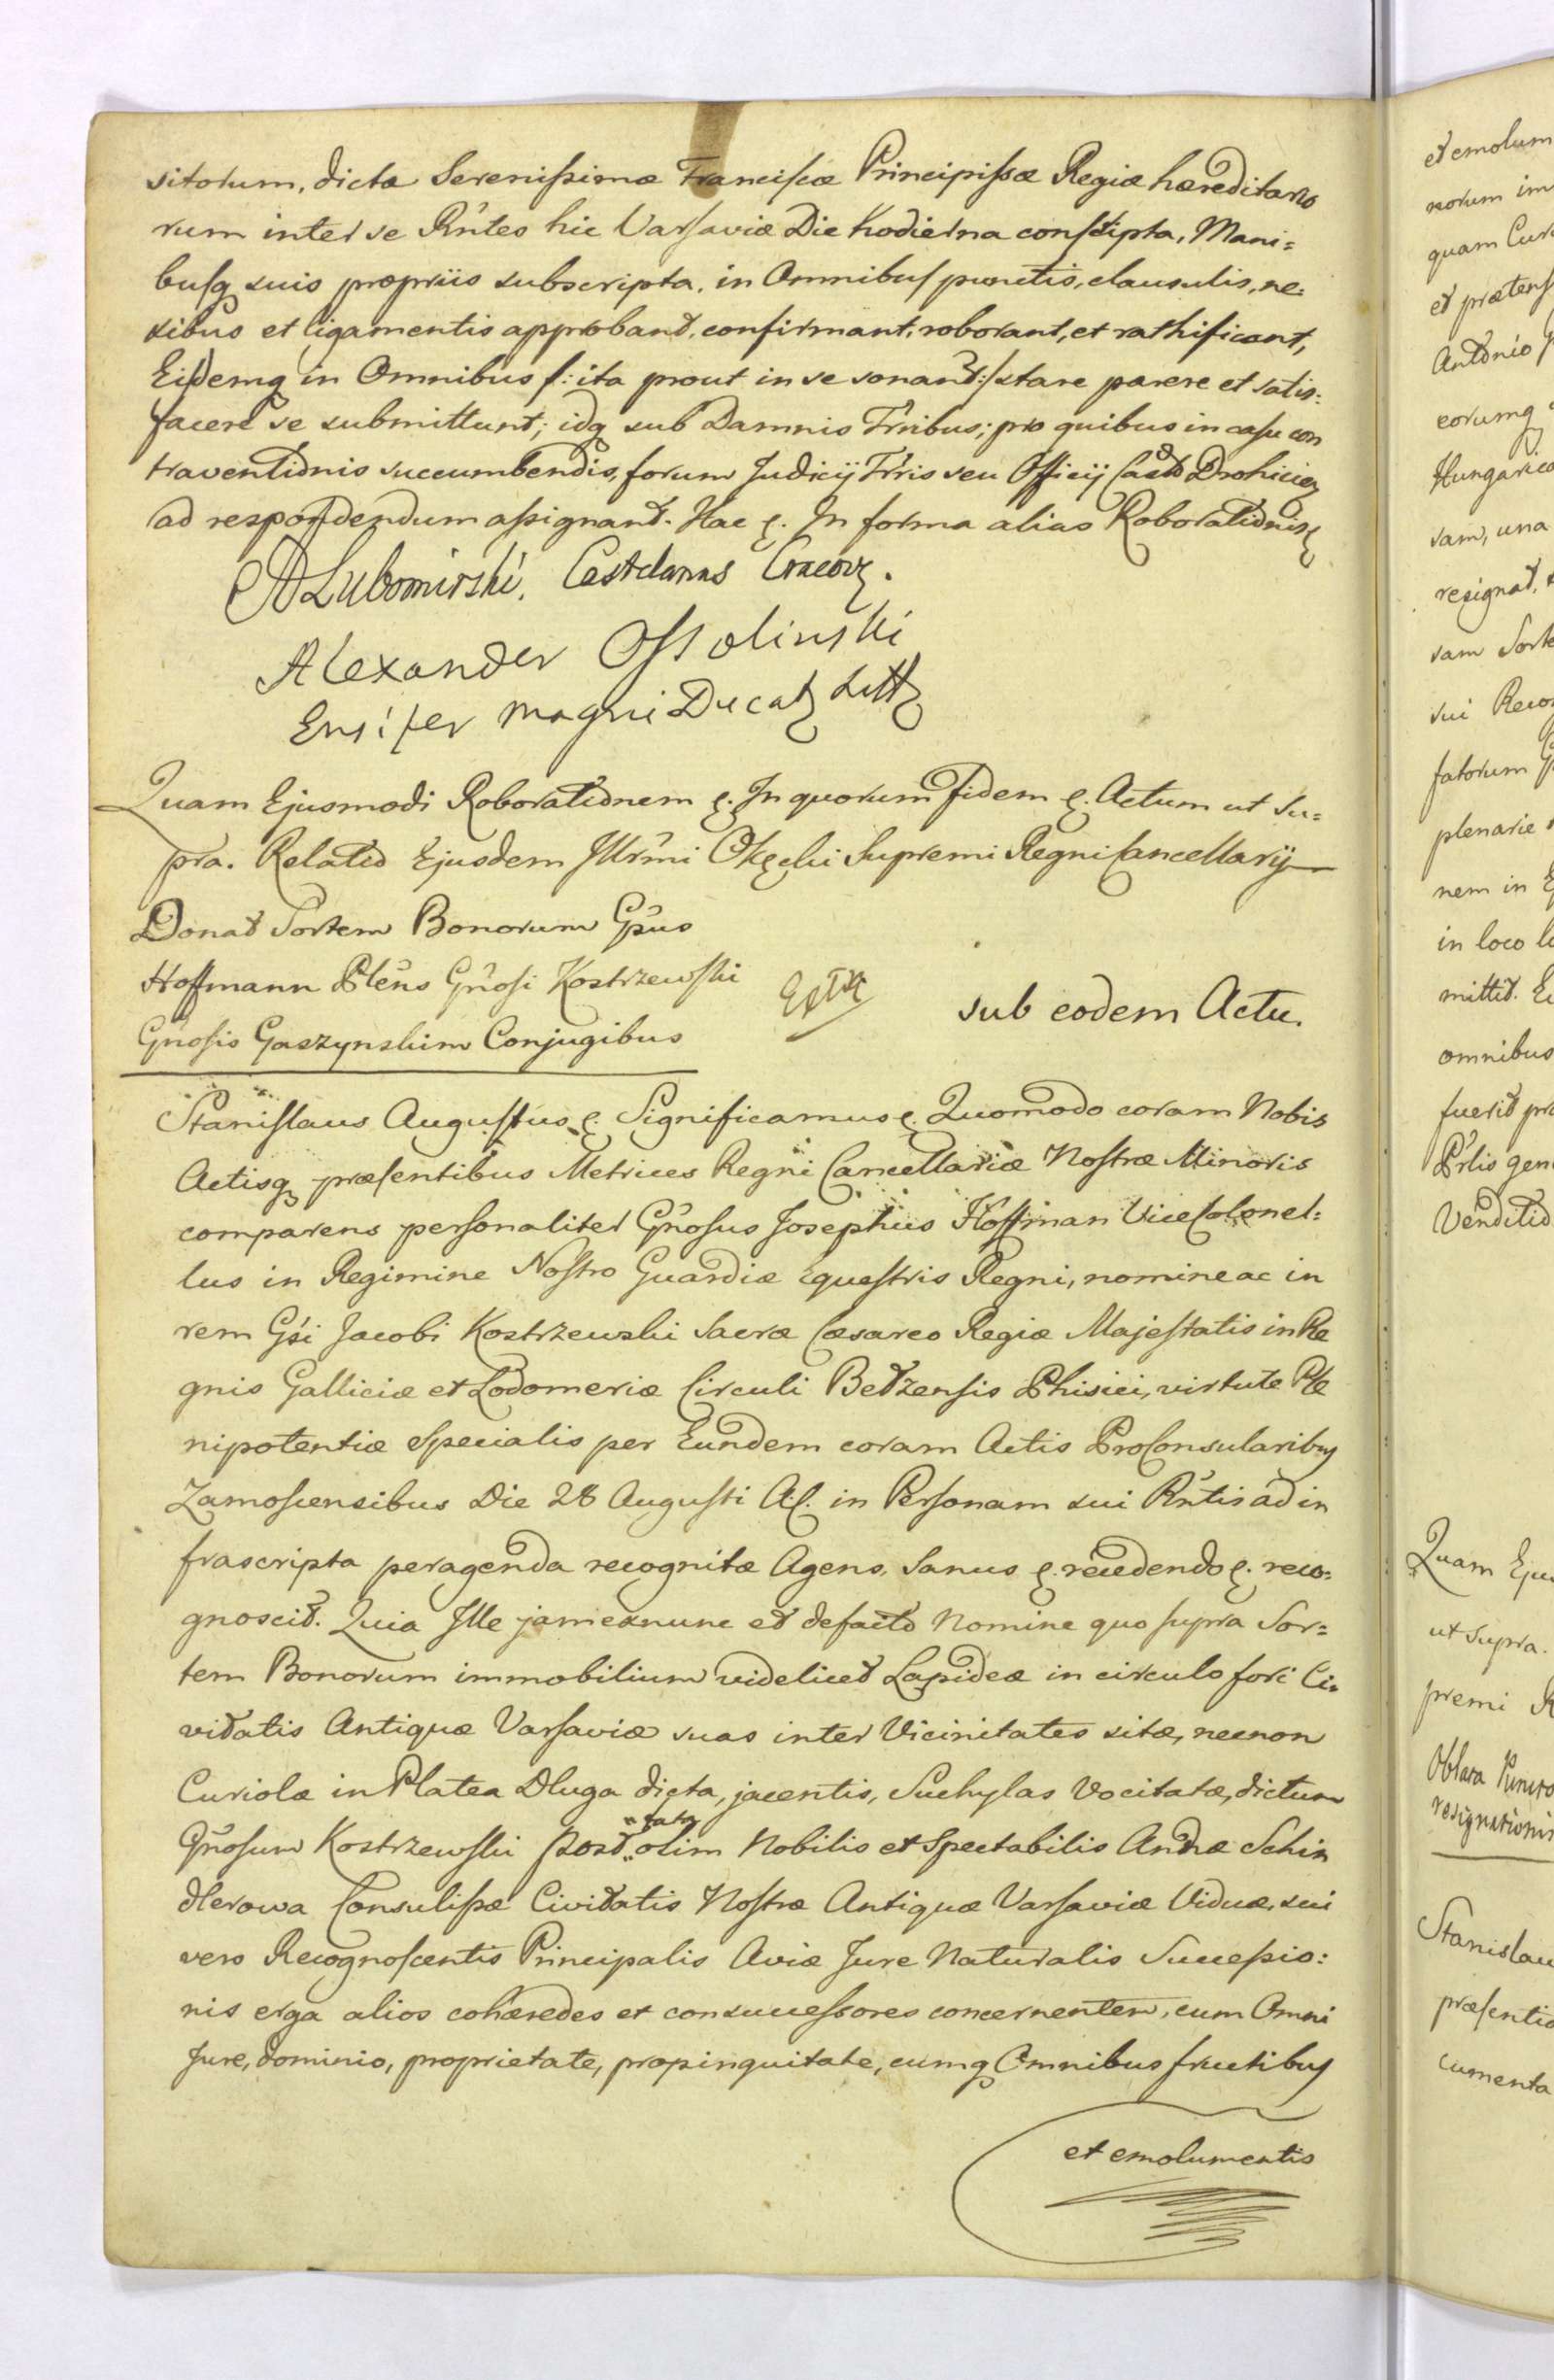 sitorum, dictæ Serenissimæ Franciscæ Principissæ Regiæ hæreditario
rum inter se Rñtes hic Varsaviæ Die hodierna conscripta, Mani=
busq suis propriis subscripta, in Omnibus punctis, clausulis, ne=
xibus et ligamentis approbant, confirmant, roborant, et rathificant,
Eisdemq in Omnibus /: ita prout in se sonant :/ stare parere et satis=
facere se submittunt; idq sub Damnis Trribus; pro quibus in casu con
traventionis succumbendis, forum Judicij Trris seu Officij Castr Drohicien
ad respondendum assignant. Hac &. In forma alias Roborationis
A Lubomirski, Castelanus Cracov.
Alexander Ossolinski
Ensifer Magni Ducat Litt
Quam Ejusmodi Roborationem &. In quorum fidem &. Actum ut Su=
pra. Relatio Ejusdem Illrmi Okęcki Supremi Regni Cancellarij
Donat Sortem Bonorum Gsus
Hoffmann Plens Gnosi Kostrzewski
Gnosis Gaszynskim Conjugibus
sub eodem Actu.
Stanislaus Augustus &. Significamus &. Quomodo coram Nobis
Actisq præsentibus Metrices Regni Cancellariæ Nostræ Minoris
comparens personaliter Gnosus Josephus Hoffman ViceColonel=
lus in Regimine Nostro Guardiæ Equestris Regni, nomine ac in
rem Gsi Jacobi Kostrzewski Sacræ Cæsareo Regiæ Majestatis in Re
gnis Galliciæ et Lodomeriæ Circuli Betzensis Phisici, virtute Ple
nipotentiæ Specialis per Eundem coram Actis ProConsularibus
Zamoscensibus Die 28 Augusti A.C. in Personam sui Rñtis ad in
frascripta peragenda recognitæ Agens, Sanus &. recedendo &. reco=
gnoscit. Quia Ille jam exnunc et defacto Nomine quo supra Sor=
tem Bonorum immobilium videlicet Lapideæ in circulo fori Ci=
vitatis Antiquæ Varsaviæ suas inter Vicinitates sitæ, necnon
Curiolæ in Platea Dluga dicta, jacentis, Suchylas Vocitatæ, dictum
Gnosum Kostrzewski post fata olim Nobilis et Spectabilis Annæ Schin
dlerowa Consulissæ Civitatis Nostræ Antiquæ Varsaviæ Viduæ, sui
vero Recognoscentis Principalis Aviæ Jure Naturalis Successio=
nis erga alios cohæredes et consuccessores concernentem, cum Omni
Jure, dominio, proprietate, propinquitate, cumq Omnibus fructibus
et emolumentis
et emolum
quam Cur
Antonio
eorumq
Hungarico
sam, una
resignat,
sam Sorte
sui Reco
fatorum
plenarie
nem in
in loco
mittit.
omnibus
fuerit
Venditio
Quam Eju
ut supra.
premi R
Oblata
resignationis
Stanislau
præsentib
cumenta